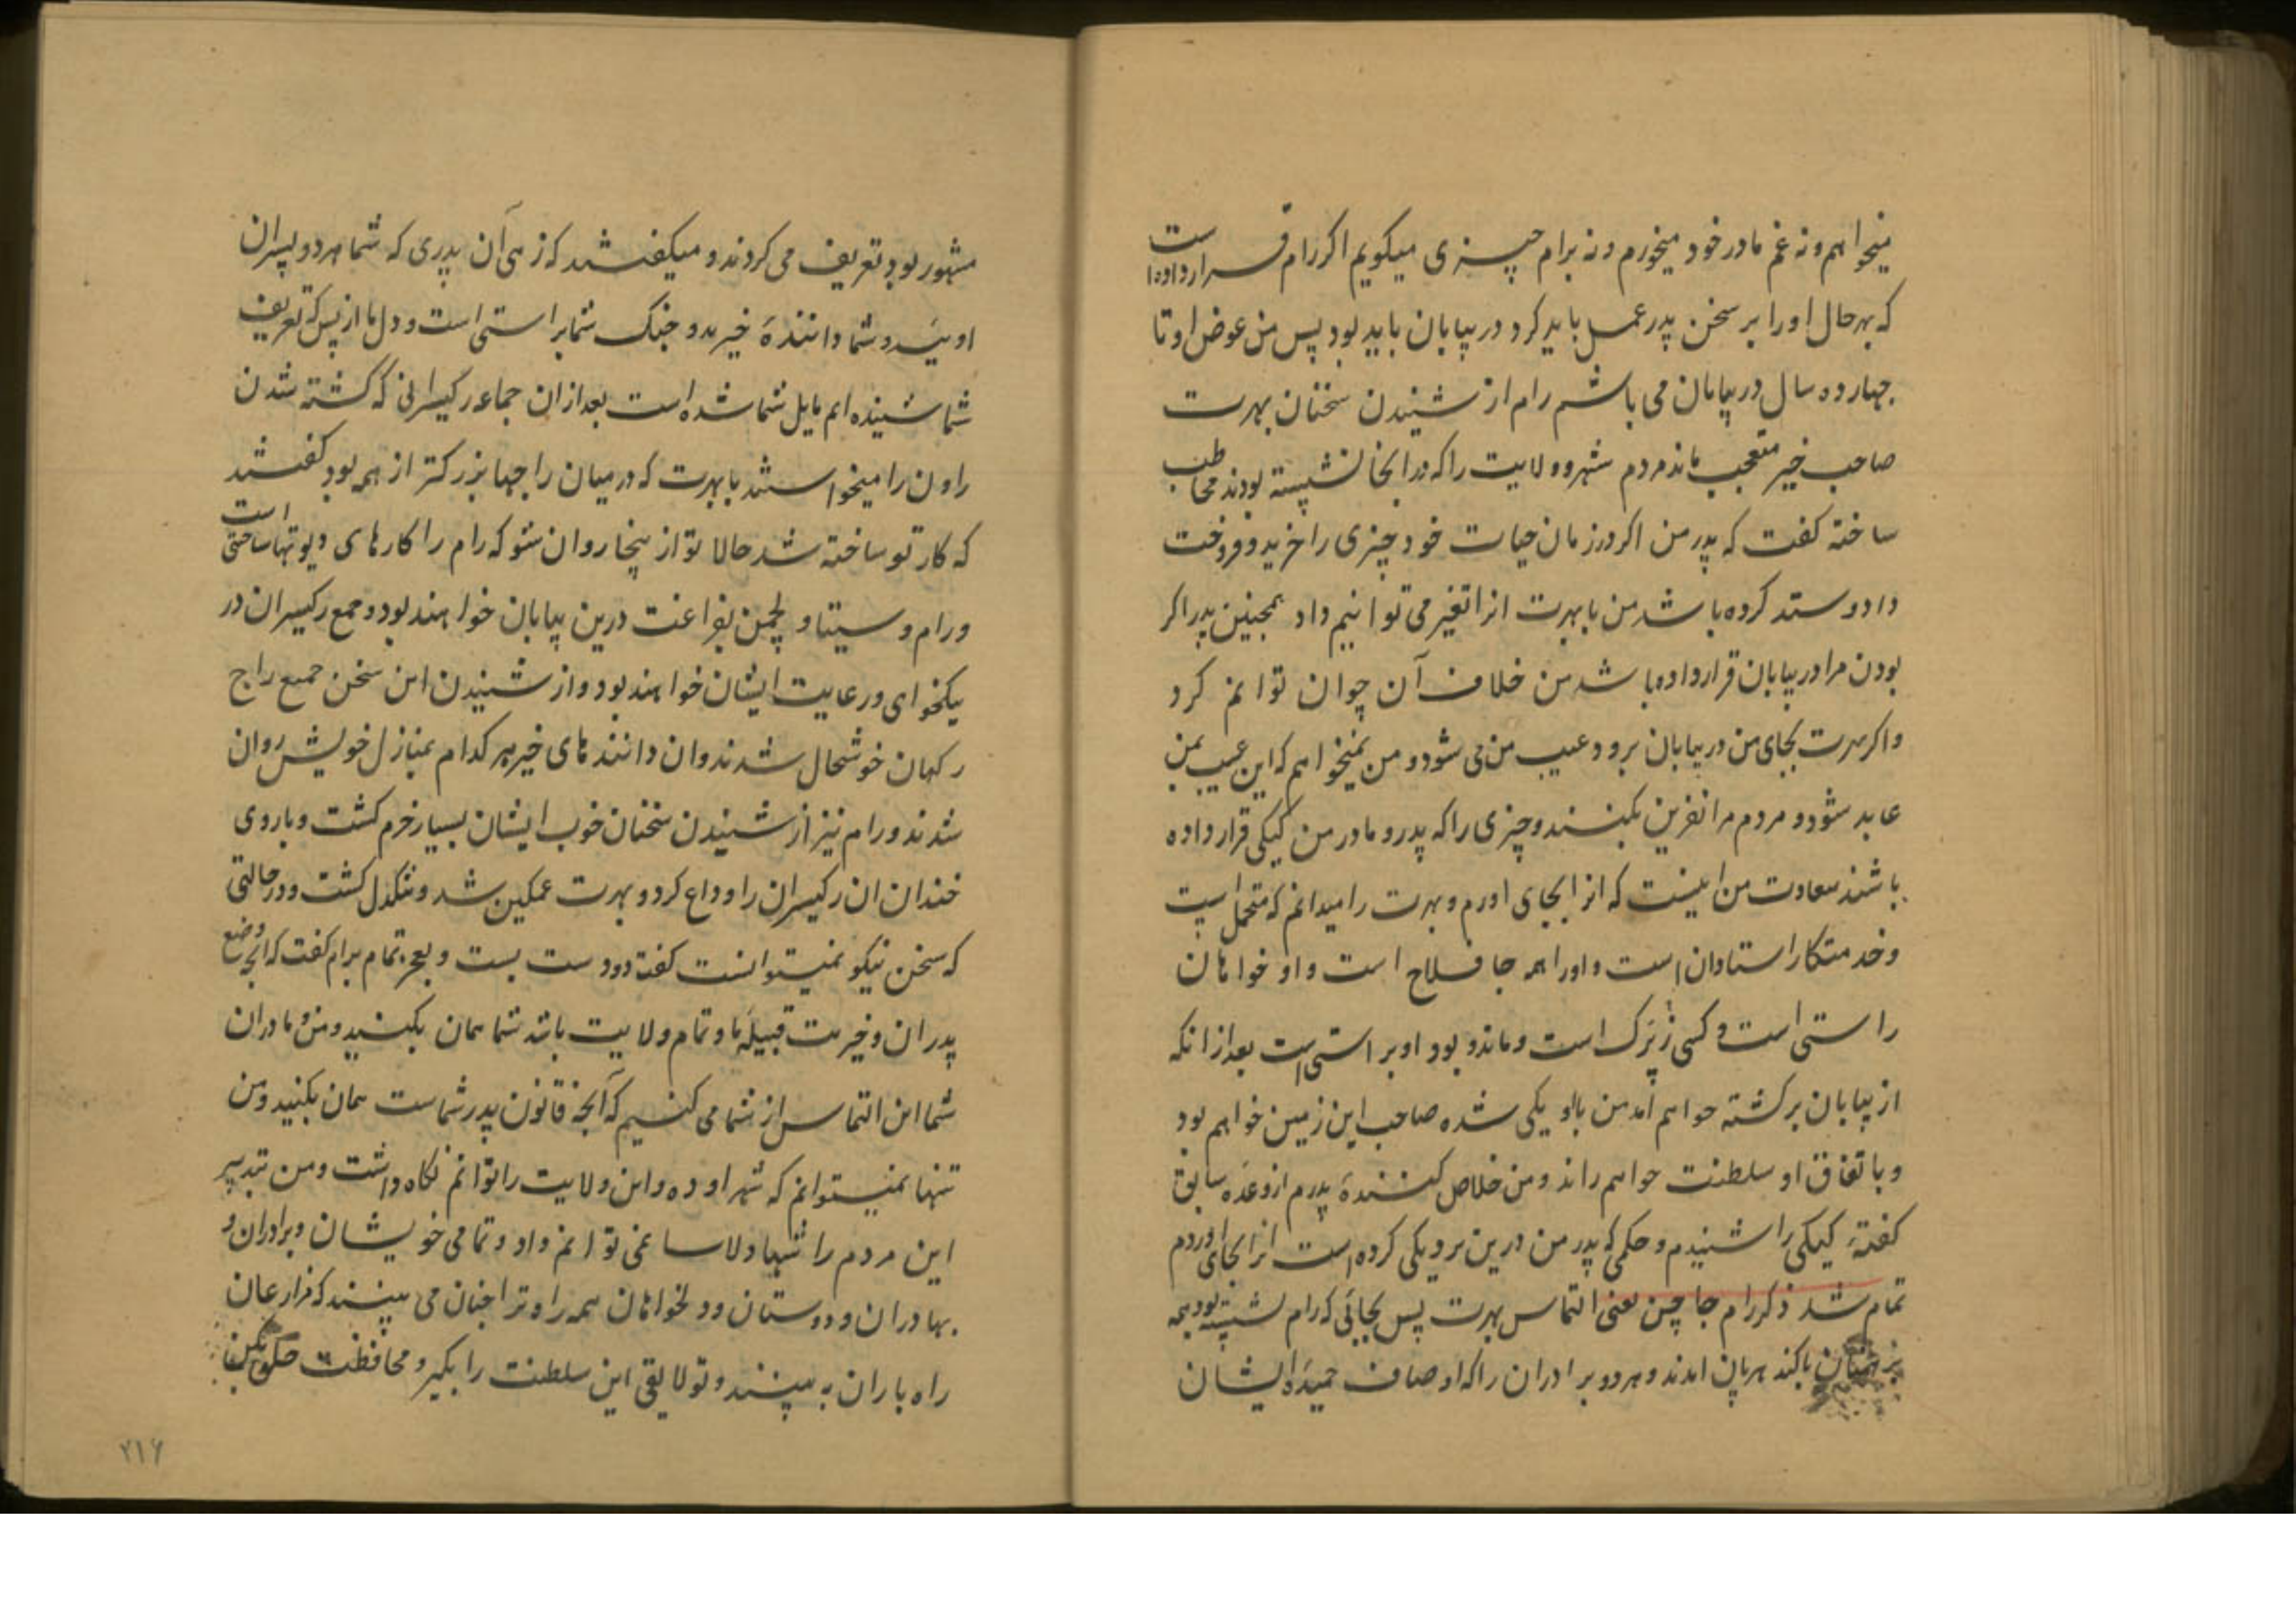 میخواهم و نه غم مادر خود میخورم و نه برام چیزی میکویم اکر رام قرار داده است
که بهر حال او را بر سخن پدر عمل باید کرد در بیابان باید بود پس من عوض او تا
چهارده سال در بیابان می باشم رام از شنیدن سخنان بهرت
صاحب خیر متعجب ماند مردم شهر و ولایت را که در انجا نشسته بودند مخاطب
ساخته کفت که پدر من اکر در زمان حیات خود چیزی را خرید و فروخت
داد و ستد کرده باشد من با بهرت انرا تغیر می توانیم داد همچنین پدر اکر
بودن مرا در بیابان قرار داده باشد من خلاف آن چون توانم کرد
و اکر بهرت بجای من در بیابان برود عیب من می شود و من نمیخواهم که این عیب بمن
عاید شود و مردم مرا نفرین بکنند و چیزی را که پدر و مادر من کیکی قرار داده
باشند سعادت من اینست که انرا بجای اورم و بهرت را میدانم که متحمل است
و خدمتکار استادان است و او را همه جا فلاح است و او خواهان
راستی است و کسی زیرک است و ماند و بود او براستی است بعد از انکه
از بیابان برکشته خواهم امد من با او یکی شده صاحب این زمین خواهم بود
و با تفاق او سلطنت خواهم راند و من خلاص کننده پدرم از وعده سابق
کفتهٔ کیکی را شنیدم و حکمی که پدر من درین بر دیکی کرده است انرا بجای اوردم
تمام شد ذکر رام جاچن یعنی التماس بهرت پس بجائی که رام نشسته بود همه
برهمنان باکند هربان امدند و هر دو برادران را که اوصاف حمیده ایشان
مشهور بود تعریف می کردند و میکفتند که زهی آن پدری که شما هر دو پسران
اوئید و شما دانندهٔ خیرید و جنک شما براستی است و دل ما از بس که تعریف
شما شنیده ایم مایل شما شده است بعد ازان جماعه رکیسرانی که کشته شدن
راون را میخواستند با بهرت که در میان راجها بزرکتر از همه بود کفتند
که کار تو ساخته شد حالا تو از ینجا روان شو که رام را کارهای دیوتها ساختنی است
و رام و سیتا و لچمن بفراغت درین بیابان خواهند بود و جمع رکیسران در
نیکخواهی و رعایت ایشان خواهند بود و از شنیدن این سخن جمیع راج
رکهان خوشحال شدند و ان دانندهای خیر هر کدام بمنازل خویش روان
شدند و رام نیز از شنیدن سخنان خوب ایشان بسیار خرم کشت و با روی
خندان ان رکیسران را وداع کرد و بهرت غمکین شد و تنکدل کشت و در حالتی
که سخن نیکو نمیتوانست کفت دو دست بست و بعجز تمام برام کفت که انچه وضع
پدران و خیریت قبیلهٔ ما و تمام ولایت باشد شما همان بکنید و من و مادران
شما این التماس از شما می کنیم که آنچه قانون پدر شماست همان بکنید و من
تنها نمیتوانم که شهر اوده و این ولایت را توانم نکاه داشت و من تدبیر
این مردم را تنها و دلاسا نمی توانم داد و تمامی خویشان و برادران و
بهادران و دوستان و دولتخواهان همه راه ترا چنان می بینند که مزارعان
راه باران به بینند و تو لایقی این سلطنت را بکیر و محافظت بکن
۲۱۶